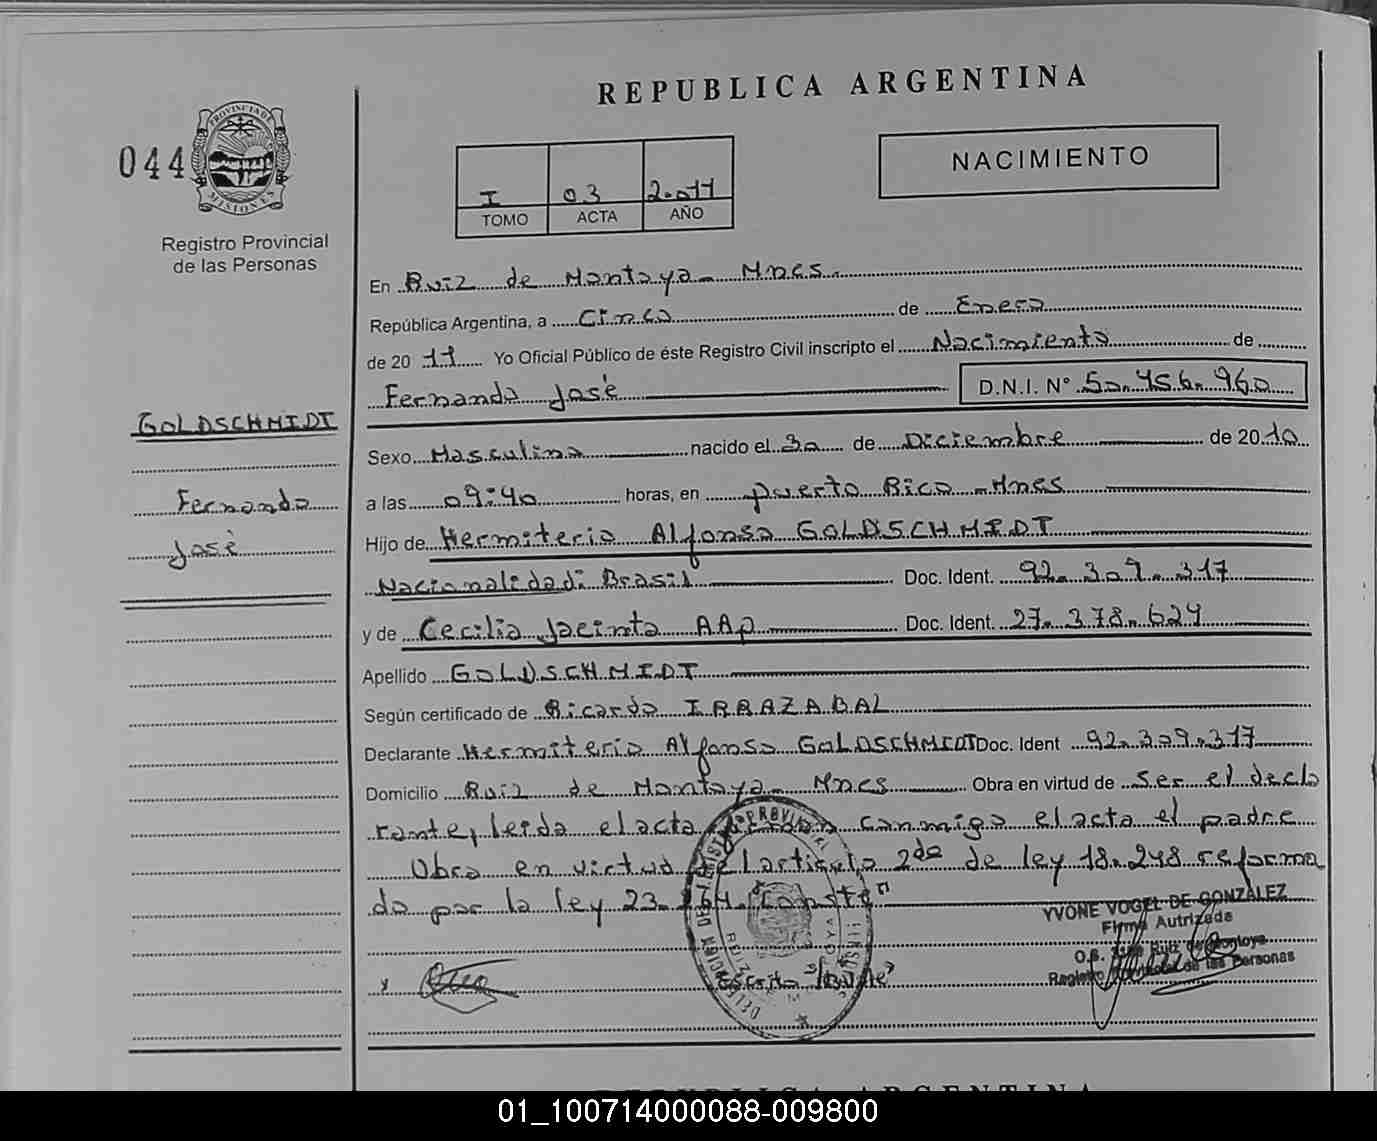 REPUBLICA ARGENTINA
044
PROVINCIA DE
MISIONES
Registro Provincial
de las Personas
I 03 2.011
TOMO ACTA AÑO
NACIMIENTO
En Ruiz de Montoya - Mnes.
República Argentina, a Cinco de Enero
de 20 11 Yo Oficial Público de éste Registro Civil inscripto el Nacimiento de
Fernando José D.N.I. N° 50.456.960
GOLDSCHMIDT
Fernando
José
Sexo Masculino nacido el 30 de Diciembre de 20 10
a las 09:40 horas, en Puerto Rico - Mnes
Hijo de Hermiterio Alfonso GOLDSCHMIDT
Nacionalidad: Brasil Doc. Ident. 92.309.317
y de Cecilia Jacinta AAp Doc. Ident. 27.378.629
Apellido GOLDSCHMIDT
Según certificado de Ricardo IRRAZABAL
Declarante Hermiterio Alfonso GOLDSCHMIDT Doc. Ident 92.309.317
Domicilio Ruiz de Montoya - Mnes Obra en virtud de Ser el decla
rante, leida el acta conmigo el acta el padre
Obra en virtud del artículo 2do de ley 18.248 reforma
do por la ley 23.264. Conste"
YVONE VOGEL DE GONZALEZ
Firma Autrizada
Registro Provincial de las Personas
Escrito "Vale"
REPUBLICA ARGENTINA
01_100714000088-009800